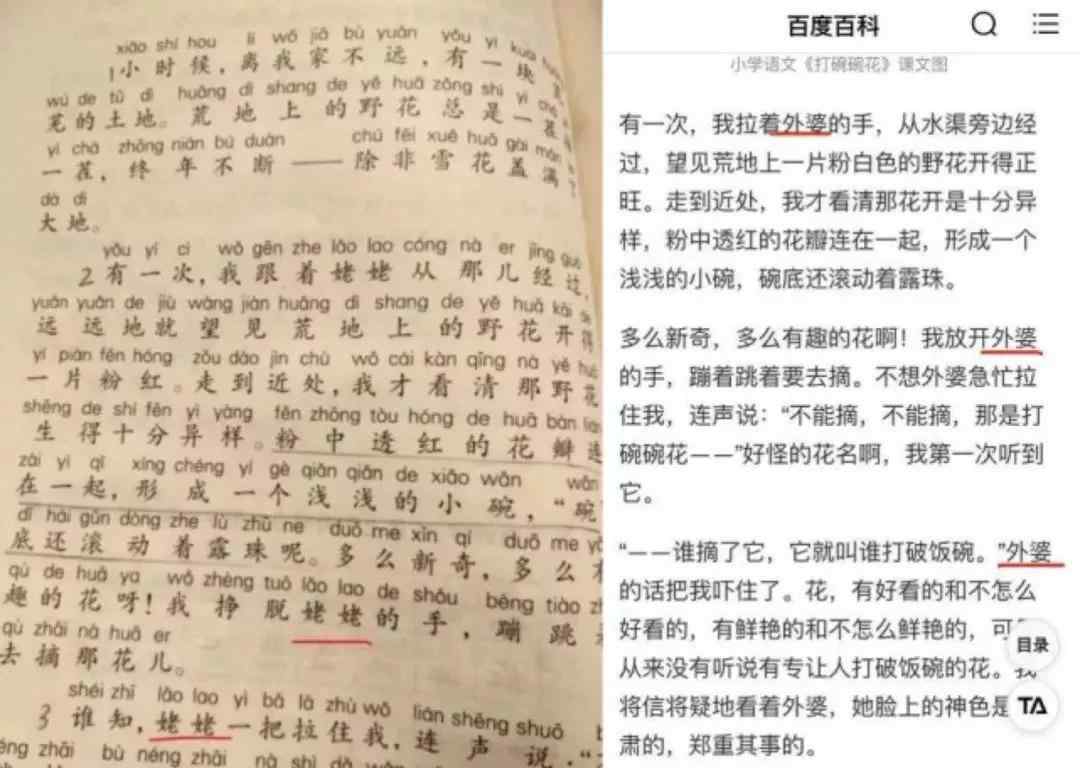 xiǎo shí hou lí wǒ jiā bù yuǎn yǒu yí kuài
1小时候，离我家不远，有一块
wú de tǔ dì huāng dì shang de yě huā zǒng shì yì chá
芜的土地。荒地上的野花总是一茬
yì chá zhōng nián bú duàn chú fēi xuě huā gài mǎn
一茬，终年不断——除非雪花盖满
dà dì
大地。
yǒu yí cì wǒ gēn zhe lǎo lao cóng nà er jīng guò
2有一次，我跟着姥姥从那儿经过，
yuǎn yuǎn de jiù wàng jiàn huāng dì shang de yě huā kāi de
远远地就望见荒地上的野花开得
yí piàn fěn hóng zǒu dào jìn chù wǒ cái kàn qīng nà yě huā
一片粉红。走到近处，我才看清那野花
shēng de shí fēn yì yàng fěn zhōng tòu hóng de huā bàn lián
生得十分异样。粉中透红的花瓣连
zài yì qǐ xíng chéng yí gè qiǎn qiǎn de xiǎo wǎn wǎn
在一起，形成一个浅浅的小碗，“碗”
dǐ hái gǔn dòng zhe lù zhū ne duō me xīn qí duō me yǒu
底还滚动着露珠呢。多么新奇，多么有
qù de huā ya wǒ zhèng tuō lǎo lao de shǒu bèng tiào zhe
趣的花呀！我挣脱姥姥的手，蹦跳着
qù zhāi nà huā er
去摘那花儿。
shéi zhī lǎo lao yì bǎ lā zhù wǒ lián shēng shuō
3谁知，姥姥一把拉住我，连声说：“
néng zhāi bù néng zhāi nà shì dǎ wǎn
百度百科
小学语文《打碗碗花》课文图
有一次，我拉着外婆的手，从水渠旁边经
过，望见荒地上一片粉白色的野花开得正
旺。走到近处，我才看清那花开是十分异
样，粉中透红的花瓣连在一起，形成一个
浅浅的小碗，碗底还滚动着露珠。
多么新奇，多么有趣的花啊！我放开外婆
的手，蹦着跳着要去摘。不想外婆急忙拉
住我，连声说：“不能摘，不能摘，那是打
碗碗花——”好怪的花名啊，我第一次听到
它。
“——谁摘了它，它就叫谁打破饭碗。”外婆
的话把我吓住了。花，有好看的和不怎么
好看的，有鲜艳的和不怎么鲜艳的，可
从来没有听说有专让人打破饭碗的花。我
将信将疑地看着外婆，她脸上的神色是
肃的，郑重其事的。
目录
TA